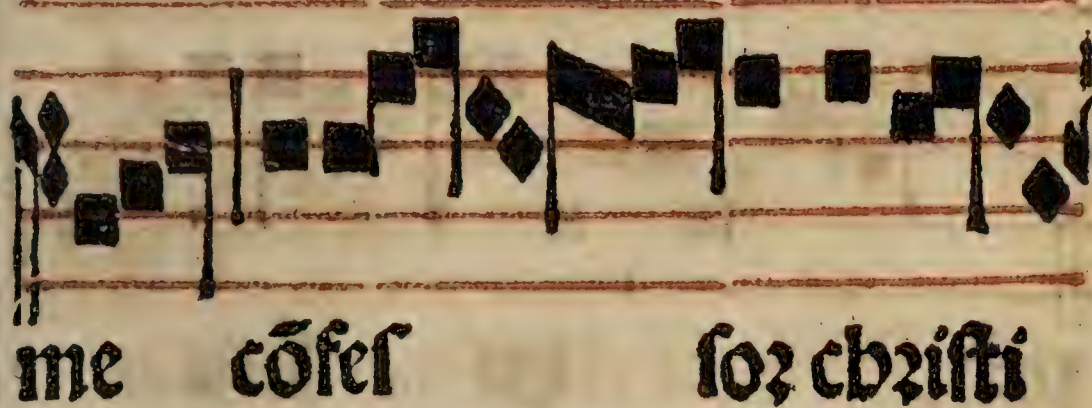 me cõfeſ ſoꝛ chꝛiſti